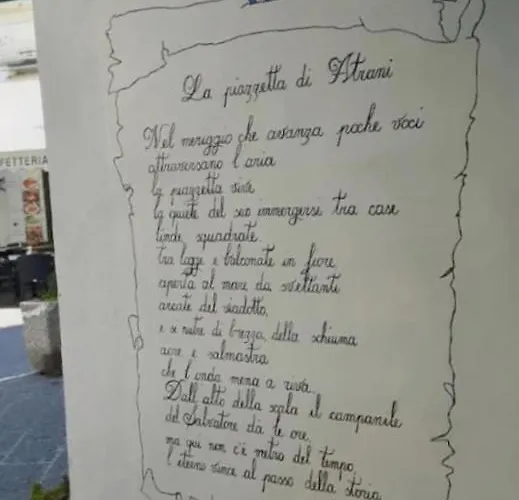 FFETTERIA
La piazzetta di Atrani
Nel meriggio che avanza poche voci
attraversano l'aria
la piazzetta vive
la quiete del suo immergersi tra case
linde squadrate.
tra logge e balconate in fiore
aperta al mare da svettanti
arcate del viadotto,
e si nutre di brezza, della schiuma
acre e salmastra
che l'onda mena a riva.
Dall'alto della scala il campanile
del Salvatore dà le ore,
ma qui non c'è metro del tempo,
l'eterno vince al passo della storia